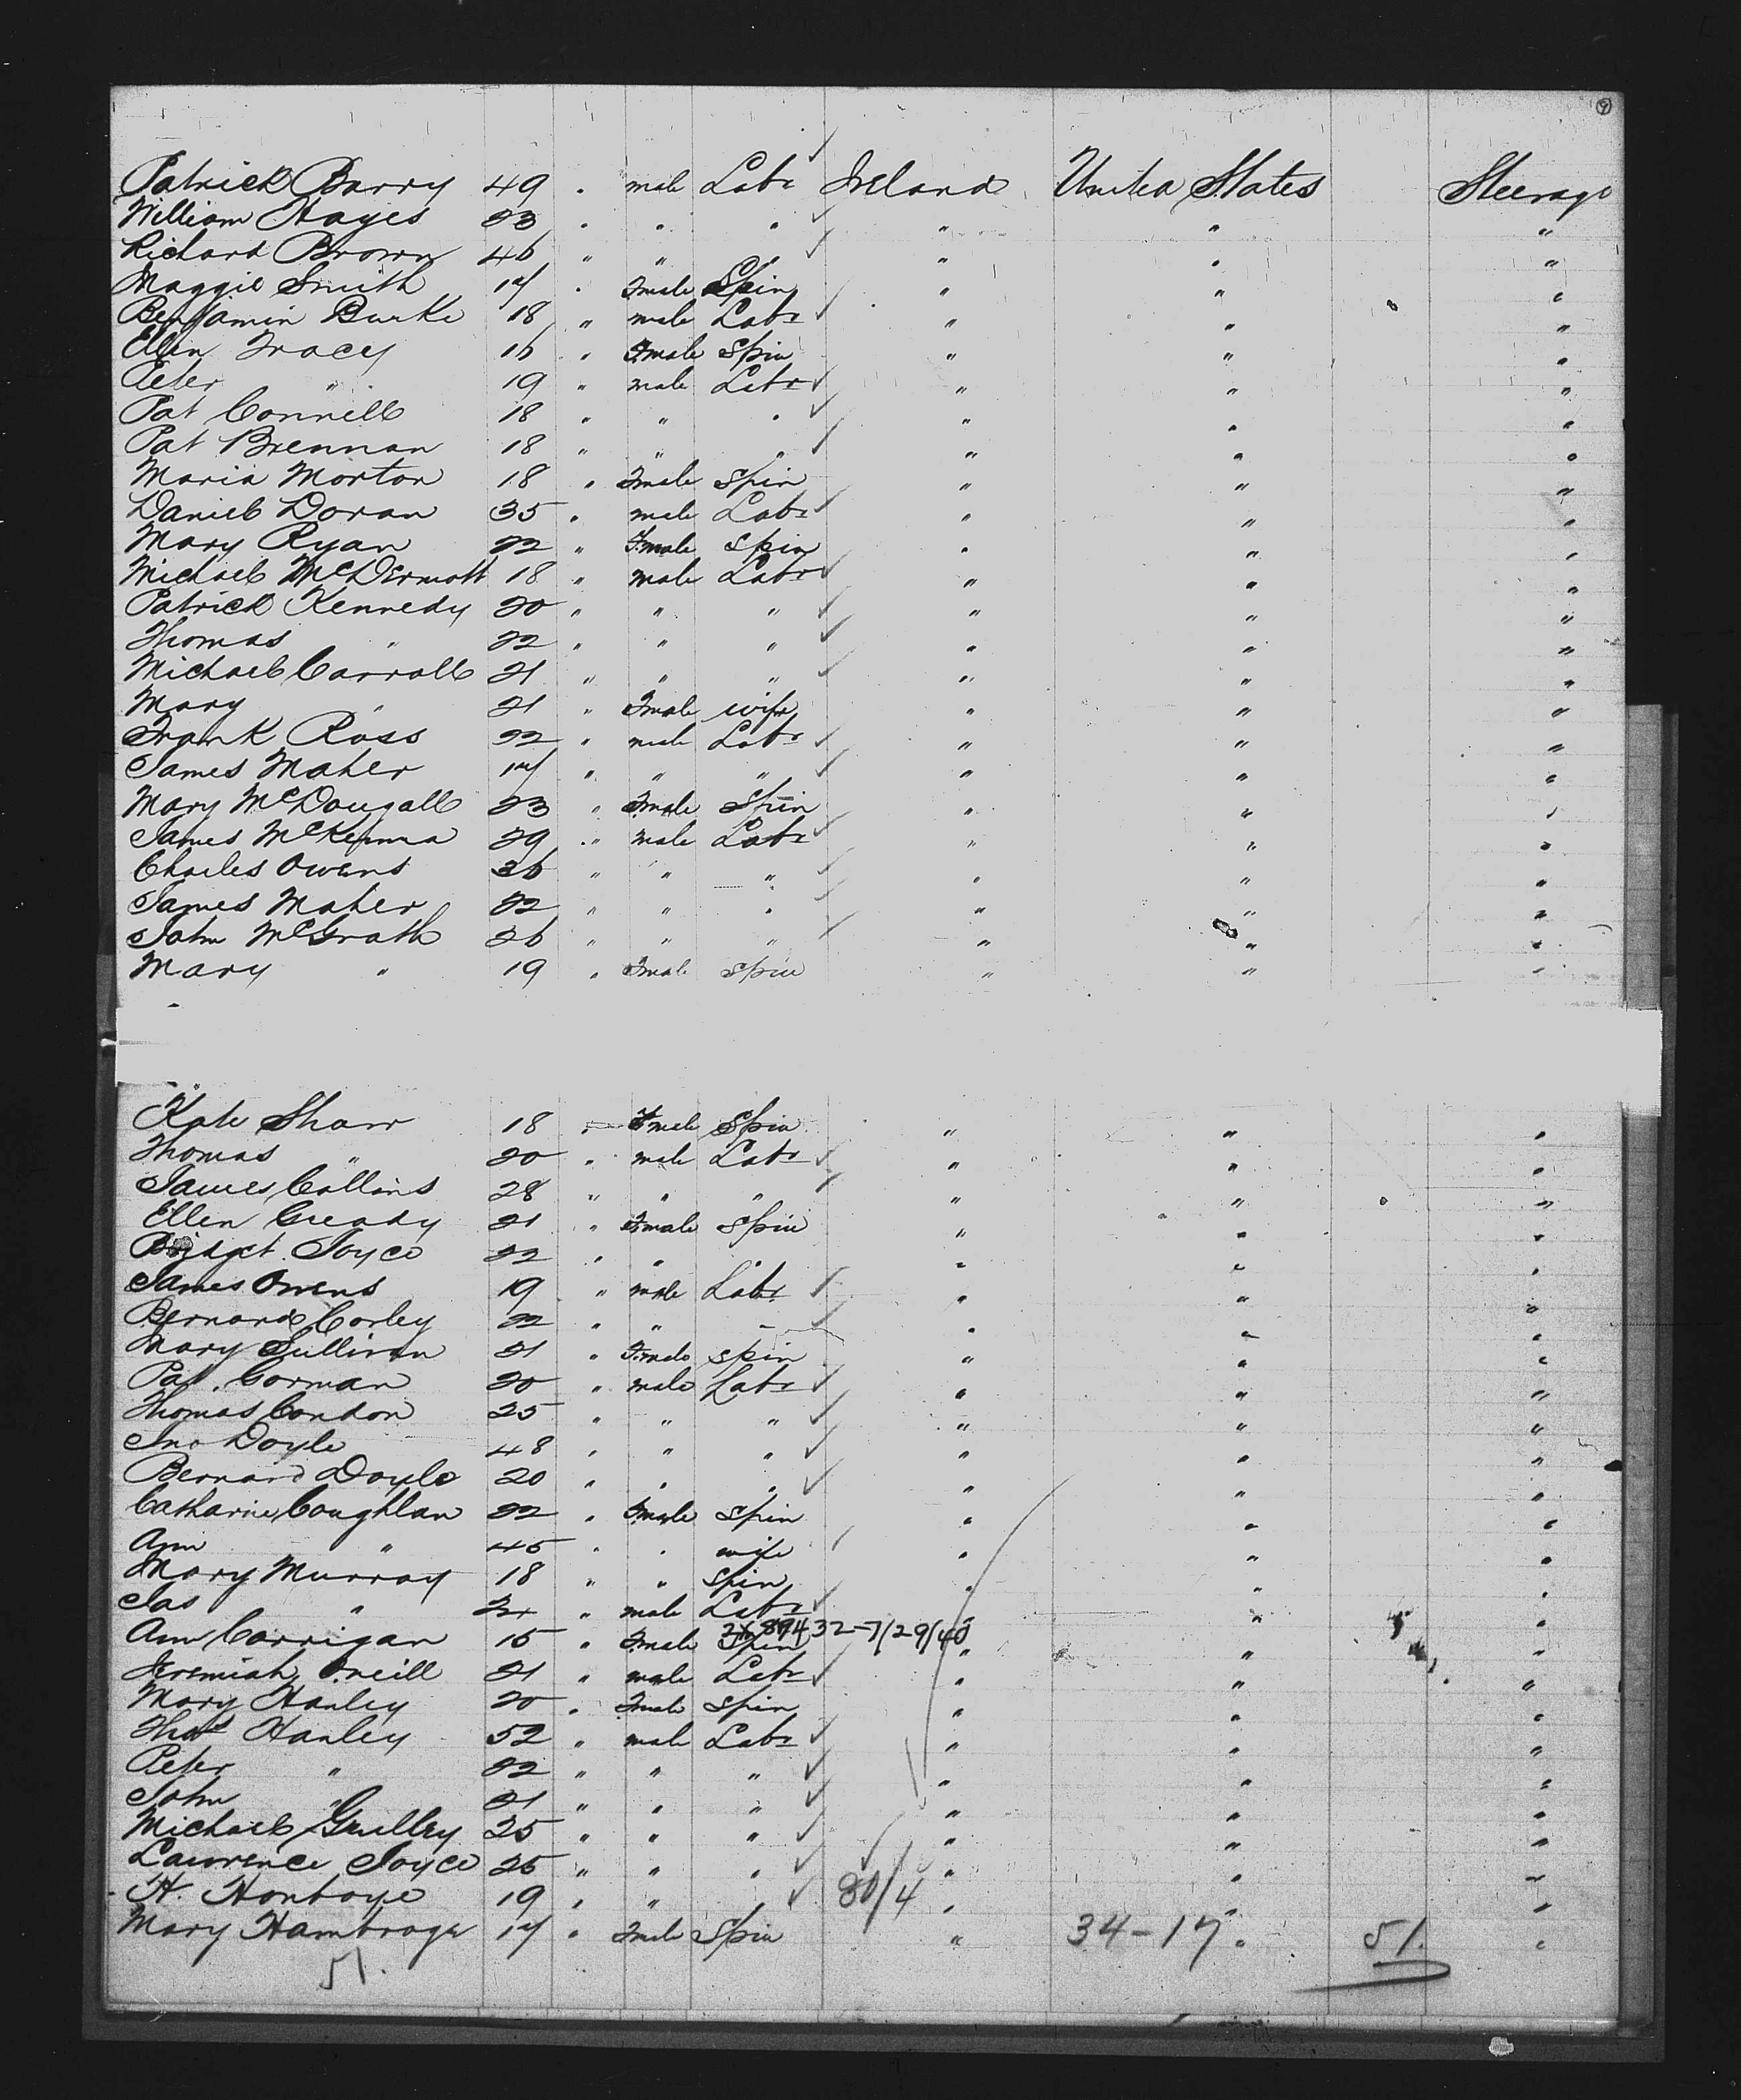 9
Patrick Barry 49 " male Labr Ireland United States Steerage
William Hayes 23 " " " " " "
Richard Brown 46 " " " " " "
Maggie Smith 17 " Fmale Spin " " "
Benjamin Burke 18 " male Labr " " "
Ellen Tracy 16 " Fmale Spin " " "
Peter " 19 " male Labr " " "
Pat Connell 18 " " " " " "
Pat Brennan 18 " " " " " "
Maria Morton 18 " Fmale Spin " " "
Daniel Doran 35 " male Labr " " "
Mary Ryan 22 " Fmale Spin " " "
Michael McDermott 18 " male Labr " " "
Patrick Kennedy 20 " " " " " "
Thomas " 22 " " " " " "
Michael Carroll 21 " " " " " "
Mary " 21 " Fmale wife " " "
Frank Ross 22 " male Labr " " "
James Maher 17 " " " " " "
Mary McDougall 23 " Fmale Spin " " "
James McKenna 29 " male Labr " " "
Charles Owens 36 " " " " " "
James Maher 22 " " " " " "
John McGrath 26 " " " " " "
Mary " 19 " Fmale Spin " " "
Kate Shaw 18 " Fmale Spin " " "
Thomas " 20 " male Labr " " "
James Collins 28 " " " " " "
Ellen Gready 21 " Fmale Spin " " "
Bridget Joyce 22 " " " " " "
James Owens 19 " male Labr " " "
Bernard Corley 22 " " " " " "
Mary Sullivan 21 " Fmale Spin " " "
Pat. Gorman 20 " male Labr " " "
Thomas Condon 25 " " " " " "
Jno Doyle 48 " " " " " "
Bernard Doyle 20 " " " " " "
Catharine Coughlan 22 " Fmale Spin " " "
Ann " 45 " " wife " " "
Mary Murray 18 " " Spin " " "
Jas " " male Labr " " "
Ann Corrigan 15 " Fmale Spin " " "
2X 89432-7/29/40
Jeremiah Oneill 21 " male Labr " " "
Mary Hanley 20 " Fmale Spin " " "
Thos Hanley 52 " male Labr " " "
Peter " 22 " " " " " "
John " 21 " " " " " "
Michael 25 " " " " " "
Lawrence Joyce 25 " " " " " "
H. 19 " " " 30/4 " " "
Mary 17 " Fmale Spin " 34-17 " 51. "
51.